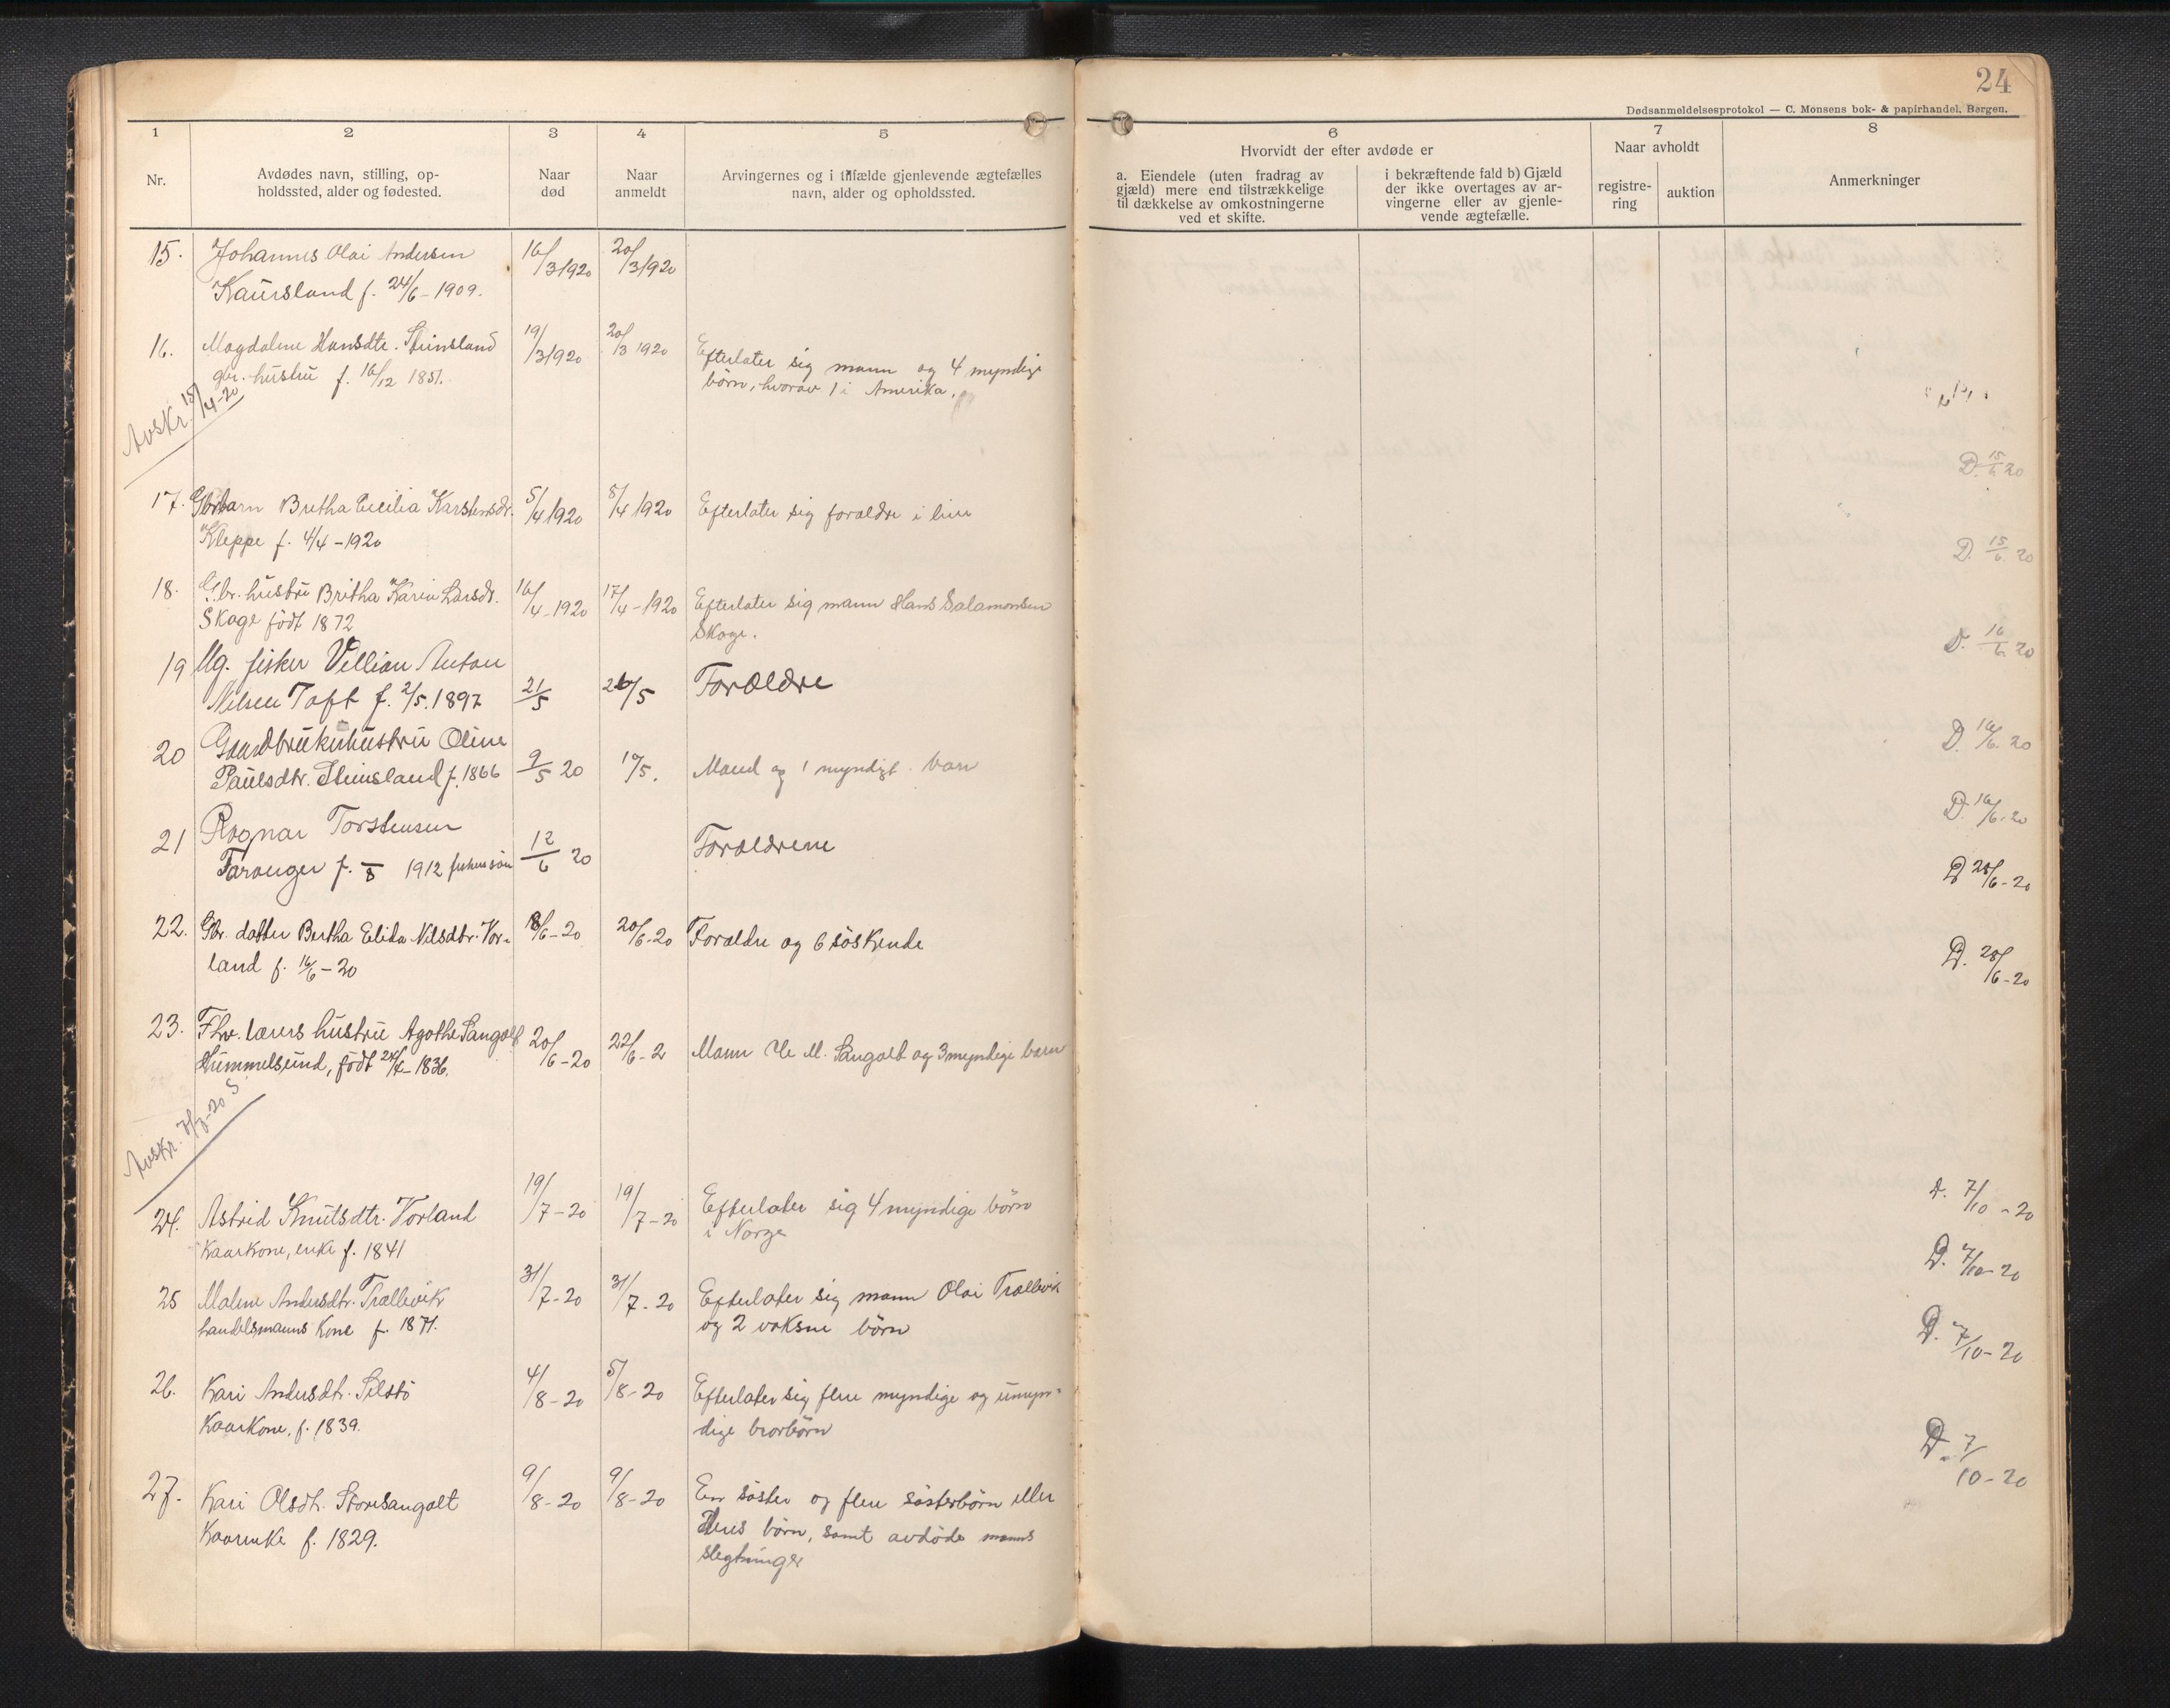 24
Dødsanmeldelsesprotokol — C. Monsens bok- & papirhandel, Bergen.
1 2 3 4 5 6 7 8
Nr.
Avdødes navn, stilling, op-
holdssted, alder og fødested.
Naar
død
Naar
anmeldt
Arvingernes og i tilfælde gjenlevende ægtefælles
navn, alder og opholdssted.
Hvorvidt der efter avdøde er
a. Eiendele (uten fradrag av
gjæld) mere end tilstrækkelige
til dækkelse av omkostningerne
ved et skifte.
i bekræftende fald b) Gjæld
der ikke overtages av ar-
vingerne eller av gjenle-
vende ægtefælle.
Naar avholdt
registre-
ring
auktion
Anmerkninger
15. Johannes Olai Andersen 16/3 1920 20/3 1920
Kaursland f. 24/6 - 1909.
16. Magdalene Hansdtr. Steinsland 19/3 1920 20/3 1920 Efterlater sig mann og 4 myndige
gbr. hustru f. 16/12 1851. børn, hvorav 1 i Amerika.
Avskr. 15/4-20
D. 15/6 20
17. Gbrbarn Bertha Cecilia Karstensdr. 5/4 1920 8/4 1920 Efterlater sig forældre i live
Kleppe f. 4/4 - 1920
D. 15/6 20
18. Gbr. hustru Britha Karin Larsdr. 16/4 - 1920 17/4 - 1920 Efterlater sig mann Hans Salamonsen
Skage født 1872 Skage.
D. 16/6 20
19 Ug. fisker Villian Anton
Nilsen Toft f. 2/5. 1897 21/5 26/5 Forældre
D. 16/6 20
20 Gaardbrukerhustru Oline
Paulsdtr. Steinsland f. 1866 9/5 20 1%. Mand og 1 myndigt barn
D. 16/6-20
21 Ragnar Torstensen
Faranger f. 8 1912 fiskersøn 12/6 20 Forældrene
D 28/6-20
22. Gbr. datter Bertha Elida Nilsdtr. Vor- 18/6-20 20/6-20 Forældre og 6 søskende
land f. 16/6-20
D. 28/6-20
23. Fhv. lærers hustru Agathe Sangolt
Hummelsund, født 1836. 20/6-20 22/6-2 Mann M. Sangolt og 3 myndige barn
Avskr. -20 S
24. Astrid Knutsdtr. Vorland 19/7-20 19/7-20 Efterlater sig 4 myndige børn
Kaarkone, enke f. 1841 i Norge
D. 7/10-20
25 Malene Andersdtr. Trællevik 31/7-20 31/7-20 Efterlater sig mann Olai Trællevik
handelsmanns kone f. 1871. og 2 voksne børn
D. 7/10-20
26. Kari Andersdtr. Selstø 4/8-20 5/8-20 Efterlater sig flere myndige og umyn-
Kaarkone, f. 1839. dige brorbørn
D. 7/10-20
27. Kari Olsdtr. Storesangolt 9/8-20 9/8-20 En søster og flere søsterbørn eller
Kaarenke f. 1829. deres børn, samt avdøde manns
slegtninger
D. 7/10-20